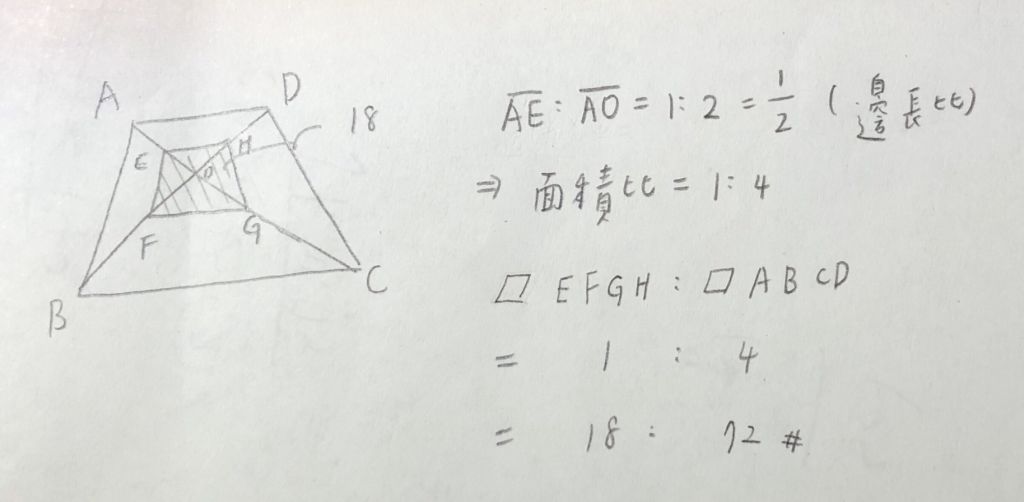 A D 18
E H
O
F G
B C
AE : AO = 1 : 2 = 1/2 ( 邊長比 )
⇒ 面積比 = 1 : 4
▱ EFGH : ▱ ABCD
= 1 : 4
= 18 : 72 #